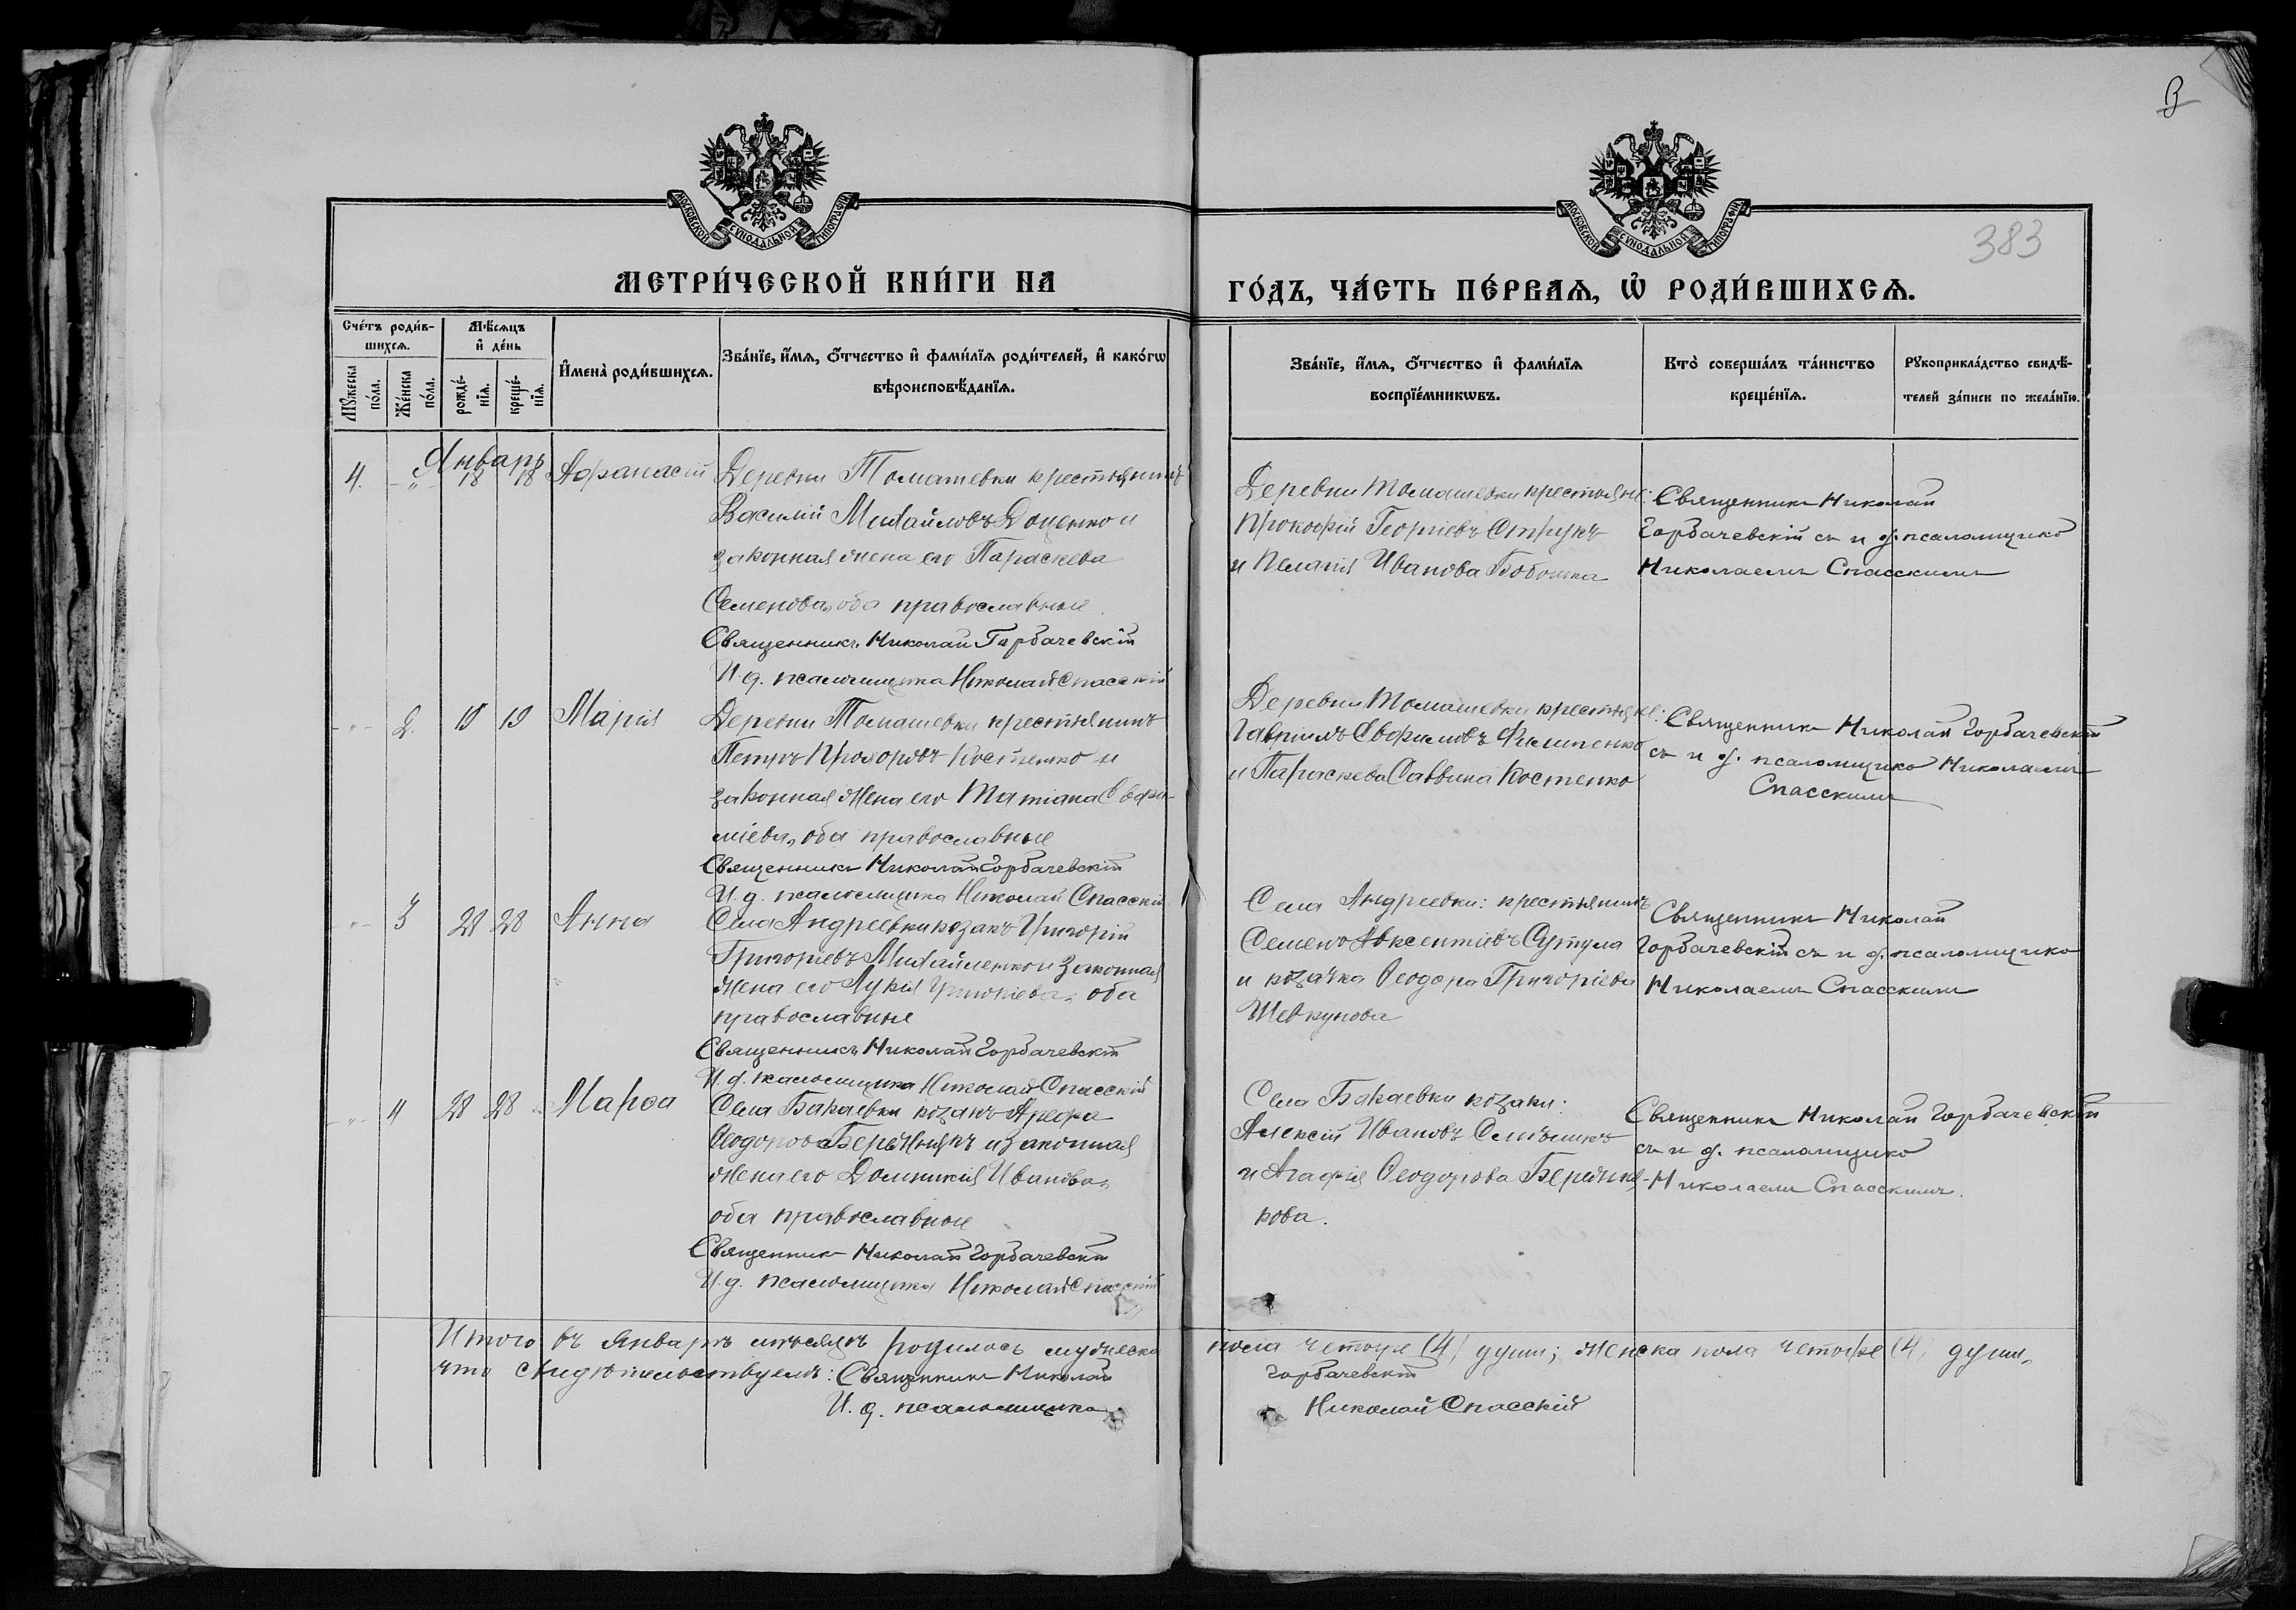 В
383
МОСКОВСКОЙ СУНОДАЛЬНОЙ ТИПОГРАФІИ
МОСКОВСКОЙ СУНОДАЛЬНОЙ ТИПОГРАФІИ
МЕТРИ́ЧЕСКОЙ КНИ́ГИ НА
ГО́ДЪ, ЧА́СТЬ ПЕ́РВАѦ, Ѡ҆ РОДИ́ВШИХСѦ.
Сче́тъ роди́в-
шихсѧ.
Мꙋ́жеска по́ла.
Же́нска по́ла.
Мѣ́сѧцъ
и҆ де́нь
рожде́-
нїѧ.
креще́-
нїѧ.
И҆мена̀ роди́вшихсѧ.
Зва́нїе, и҆́мѧ, ѻ҆́тчество и҆ фами́лїѧ роди́телей, и҆ како́гѡ
вѣроисповѣ́данїѧ.
Зва́нїе, и҆́мѧ, ѻ҆́тчество и҆ фами́лїѧ
воспрїе́мникѡвъ.
Кто̀ соверша́лъ та́инство
креще́нїѧ.
Рꙋкоприкла́дство свидѣ́-
телей за́писи по жела́нїю.
Январь
4. - " - 18 18 Афанасій
Деревни Томашевки крестьянинъ
Василій Михайловъ Доценко и
законная жена его Параскева
Семенова, оба православные.
Священникъ Николай Горбачевскій
И. д. псаломщика Николай Спасскій
Деревни Томашевки крестьяне:
Прокофій Георгіевъ Струкъ
и Пелагія Иванова
Священникъ Николай
Горбачевскій съ и д. псаломщика
Николаемъ Спасскимъ
- " - 2. 19 19 Марія
Деревни Томашевки крестьянинъ
Петръ Прохоровъ Костенко и
законная жена его Татіана Евфи-
міева, оба православные
Священникъ Николай Горбачевскій
И. д. псаломщика Николай Спасскій
Деревни Томашевки крестьяне:
Гавріилъ Филипенко
и Параскева Саввина Костенко
Священникъ Николай Горбачевскій
съ и д. псаломщика Николаемъ
Спасскимъ
- " - 3 28 28 Анна
Села Андреевки козакъ Григорій
Григорьевъ Михайленко и законная
жена его Лукія Григоріева, оба
православные
Священникъ Николай Горбачевскій
И. д. псаломщика Николай Спасскій
Села Андреевки: крестьянинъ
Семенъ Авксентіевъ Сутула
и козачка Ѳеодора Григоріева
Шевкунова
Священникъ Николай
Горбачевскій съ и д. псаломщика
Николаемъ Спасскимъ
- " - 4 28 28 Марѳа
Села Бакаевки козакъ Арефа
Ѳеодоровъ и законная
жена его Домникія Иванова,
оба православные
Священникъ Николай Горбачевскій
И. д. псаломщика Николай Спасскій
Села Бакаевки козаки:
Алексій Ивановъ
и Агафія Ѳеодорова
кова.
Священникъ Николай Горбачевскій
съ и д. псаломщика
Николаемъ Спасскимъ.
Итого въ Январѣ мѣсяцѣ родилось мужеска
пола четыре (4) души; женска пола четыре (4) души,
что свидѣтельствуемъ: Священникъ Николай
Горбачевскій
И. д. псаломщика
Николай Спасскій